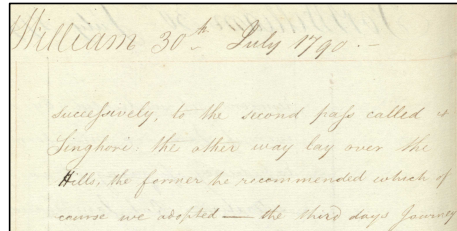 William 30th July 1790.—
successively, to the second pass called
Singhori the other way lay over the
Hills, the former he recommended which of
course we adopted — the third days Journey